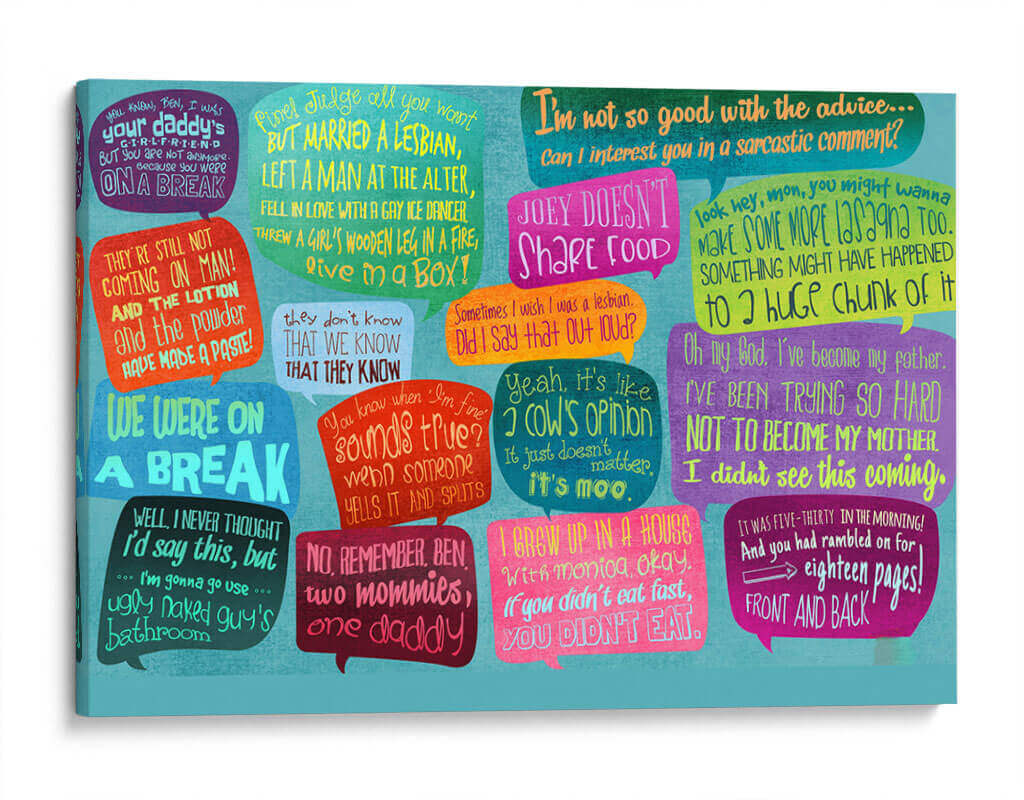 YOU KNOW, BEN, I WAS
your daddy's
GIRLFRIEND
BUT YOU ARE NOT ANYMORE.
BECAUSE YOU WERE
ON A BREAK
BUT MARRIED A LESBIAN,
LEFT A MAN AT THE ALTER,
FELL IN LOVE WITH A GAY ICE DANCER,
THREW A GIRL'S WOODEN LEG IN A FIRE,
live in a Box!
I'm not so good with the advice...
Can I interest you in a sarcastic comment?
JOEY DOESN'T
SHARE FOOD
look hey, mon, you might wanna
MAKE SOME MORE lasagna TOO.
SOMETHING MIGHT HAVE HAPPENED
to a huge chunk of it
THEY'RE STILL NOT
COMING ON MAN!
AND THE LOTION
and the powder
HAVE MADE A PASTE!
they don't know
THAT WE KNOW
THAT THEY KNOW
Sometimes I wish I was a lesbian.
Did I say that out loud?
Oh my God, I've become my father.
I'VE BEEN TRYING SO HARD
NOT TO BECOME MY MOTHER.
I didn't see this coming.
WE WERE ON
A BREAK
You know when 'I'm fine'
sounds true?
wenn someone
YELLS IT AND SPLITS
Yeah, it's like
a cow's opinion
It just doesn't
matter.
it's moo.
WELL, I NEVER THOUGHT
I'd say this, but
... I'm gonna go use ...
ugly naked guy's
bathroom
NO, REMEMBER, BEN,
two mommies,
one daddy
I GREW UP IN A HOUSE
with monica, okay.
if you didn't eat fast,
YOU DIDN'T EAT.
IT WAS FIVE-THIRTY IN THE MORNING!
And you had rambled on for
eighteen pages!
FRONT AND BACK